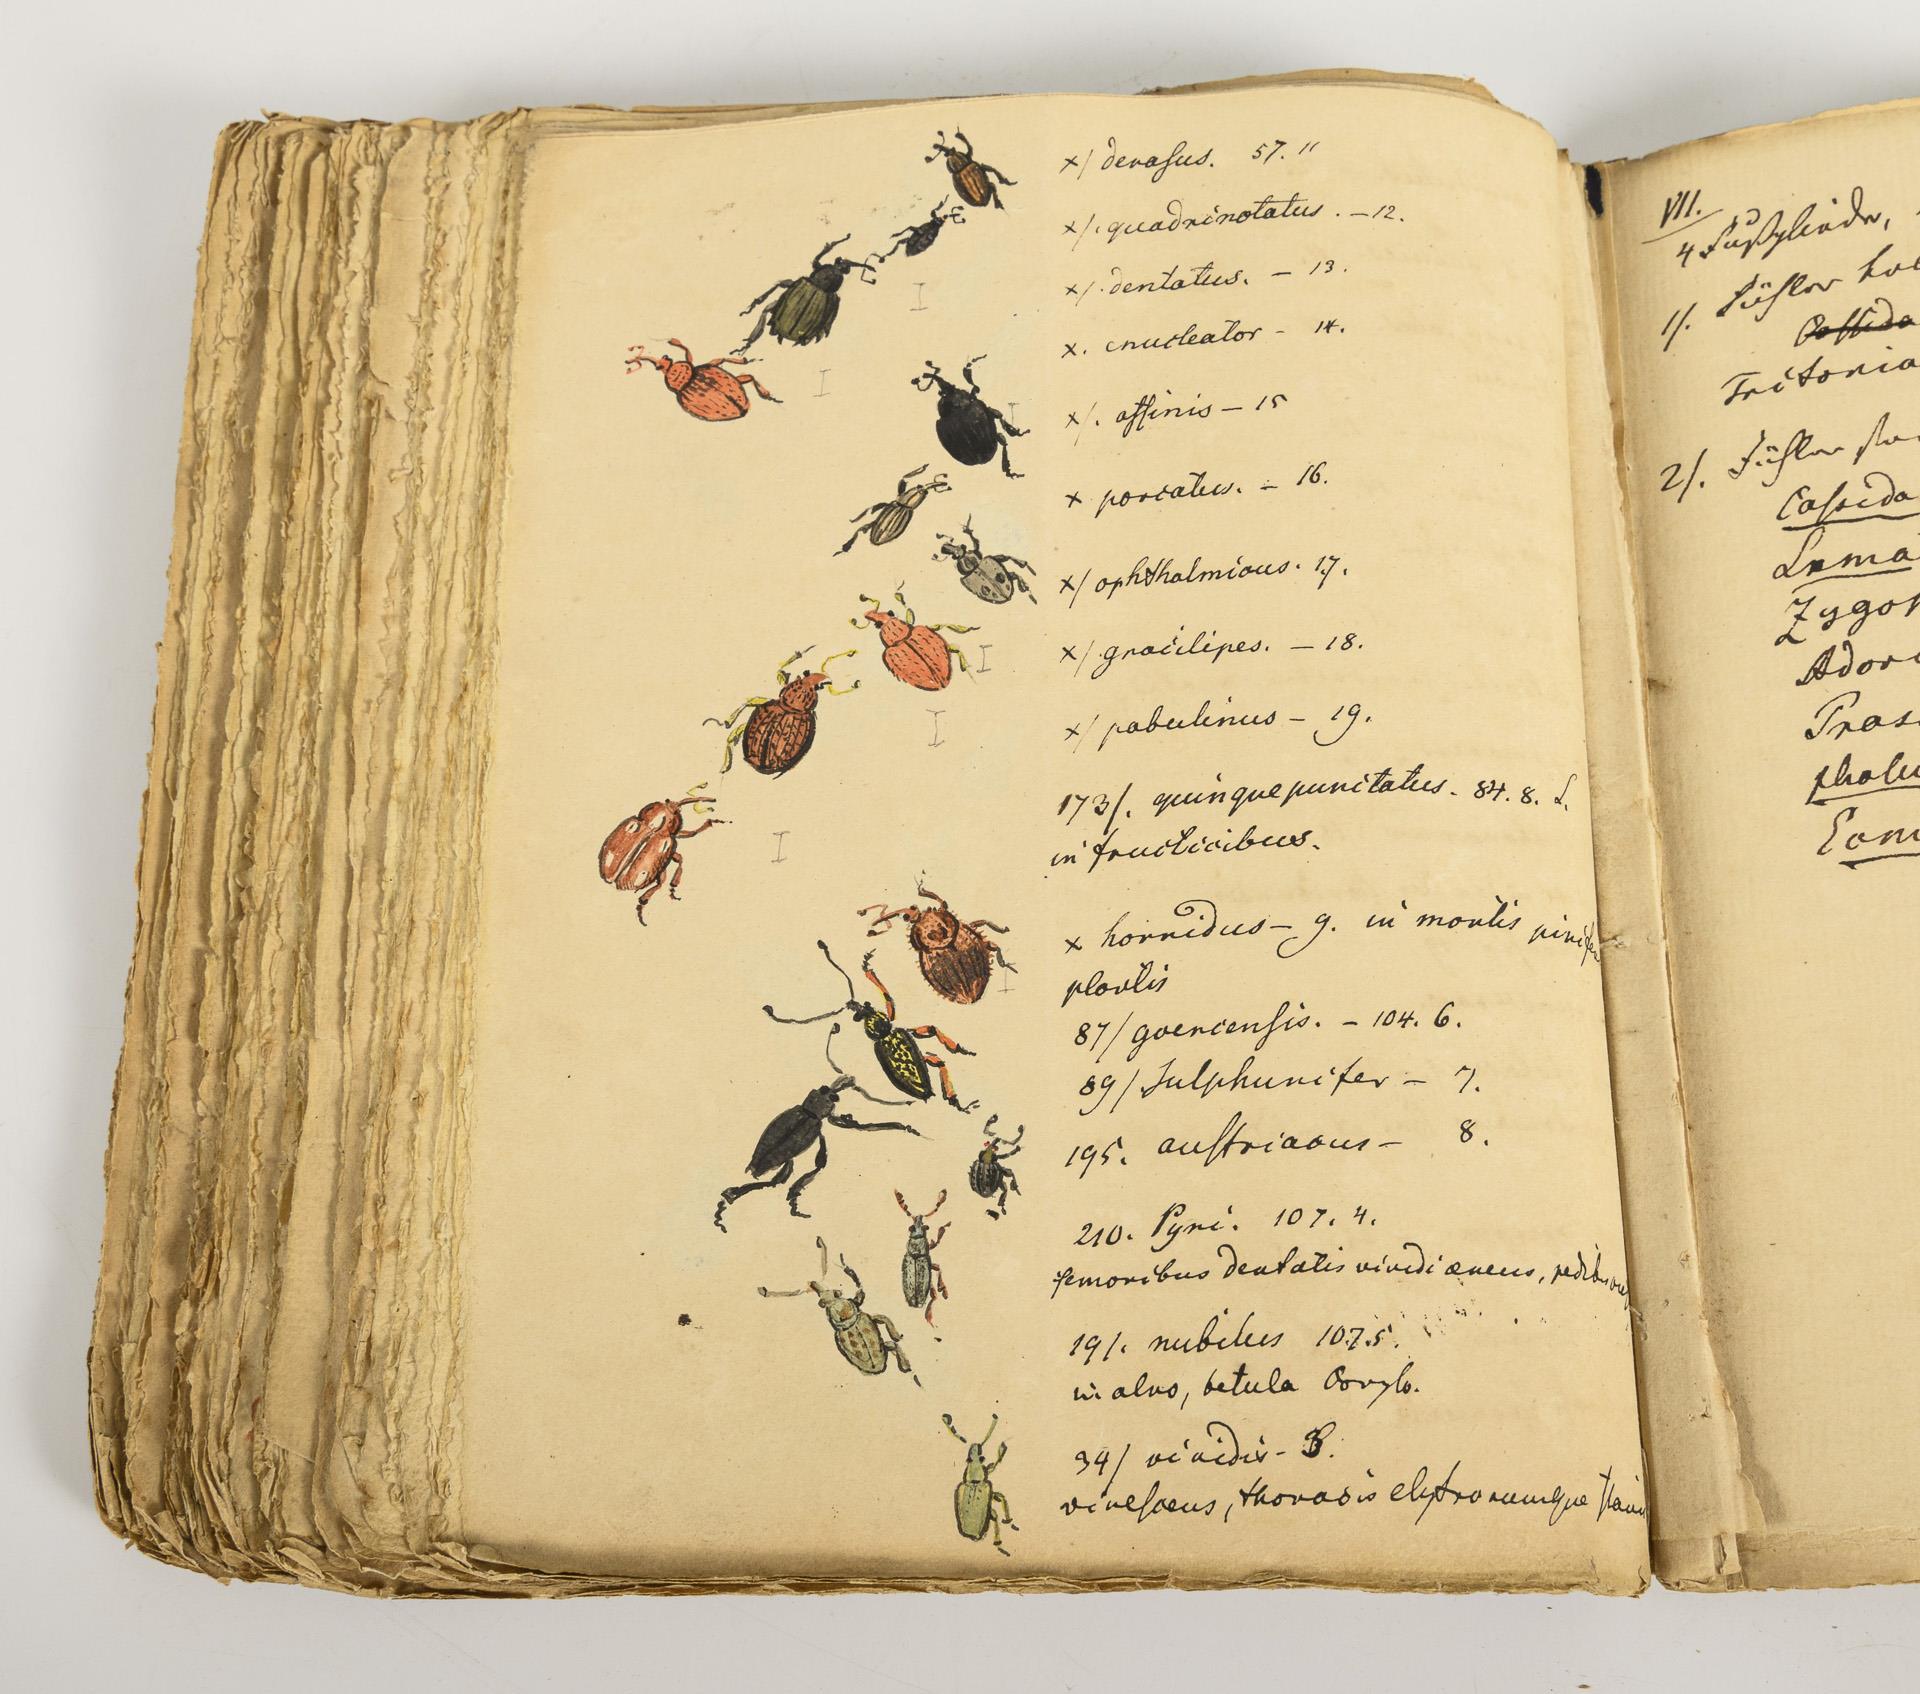 x/ derasus. 57. 11
x/. quadrinotatus. – 12.
x/. dentatus. – 13.
x. enucleator – 14.
x/. affinis – 15
x porcatus. – 16.
x/ ophthalmicus. 17.
x/ gracilipes. – 18.
x/ pabulinus – 19.
173/. quinquepunctatus. 84. 8. L.
in fruticibus.
x horridus – 9. in montis
plantis
87/ goercensis. – 104. 6.
89/ Sulphurifer – 7.
195. austriacus – 8.
210. Pyri. 107. 4.
femoribus dentatis viridi æneus, pedibus
191. nubilus 107.5.
in alno, betula Coryl.
34/ viridis – 8.
virescens, thoracis elytrorumque
VII.
4 Fußglieder,
1/. Fühler
Cassida
Tritoma
2/. Fühler
Cassida
Lema
Zygo
Ador
Pras